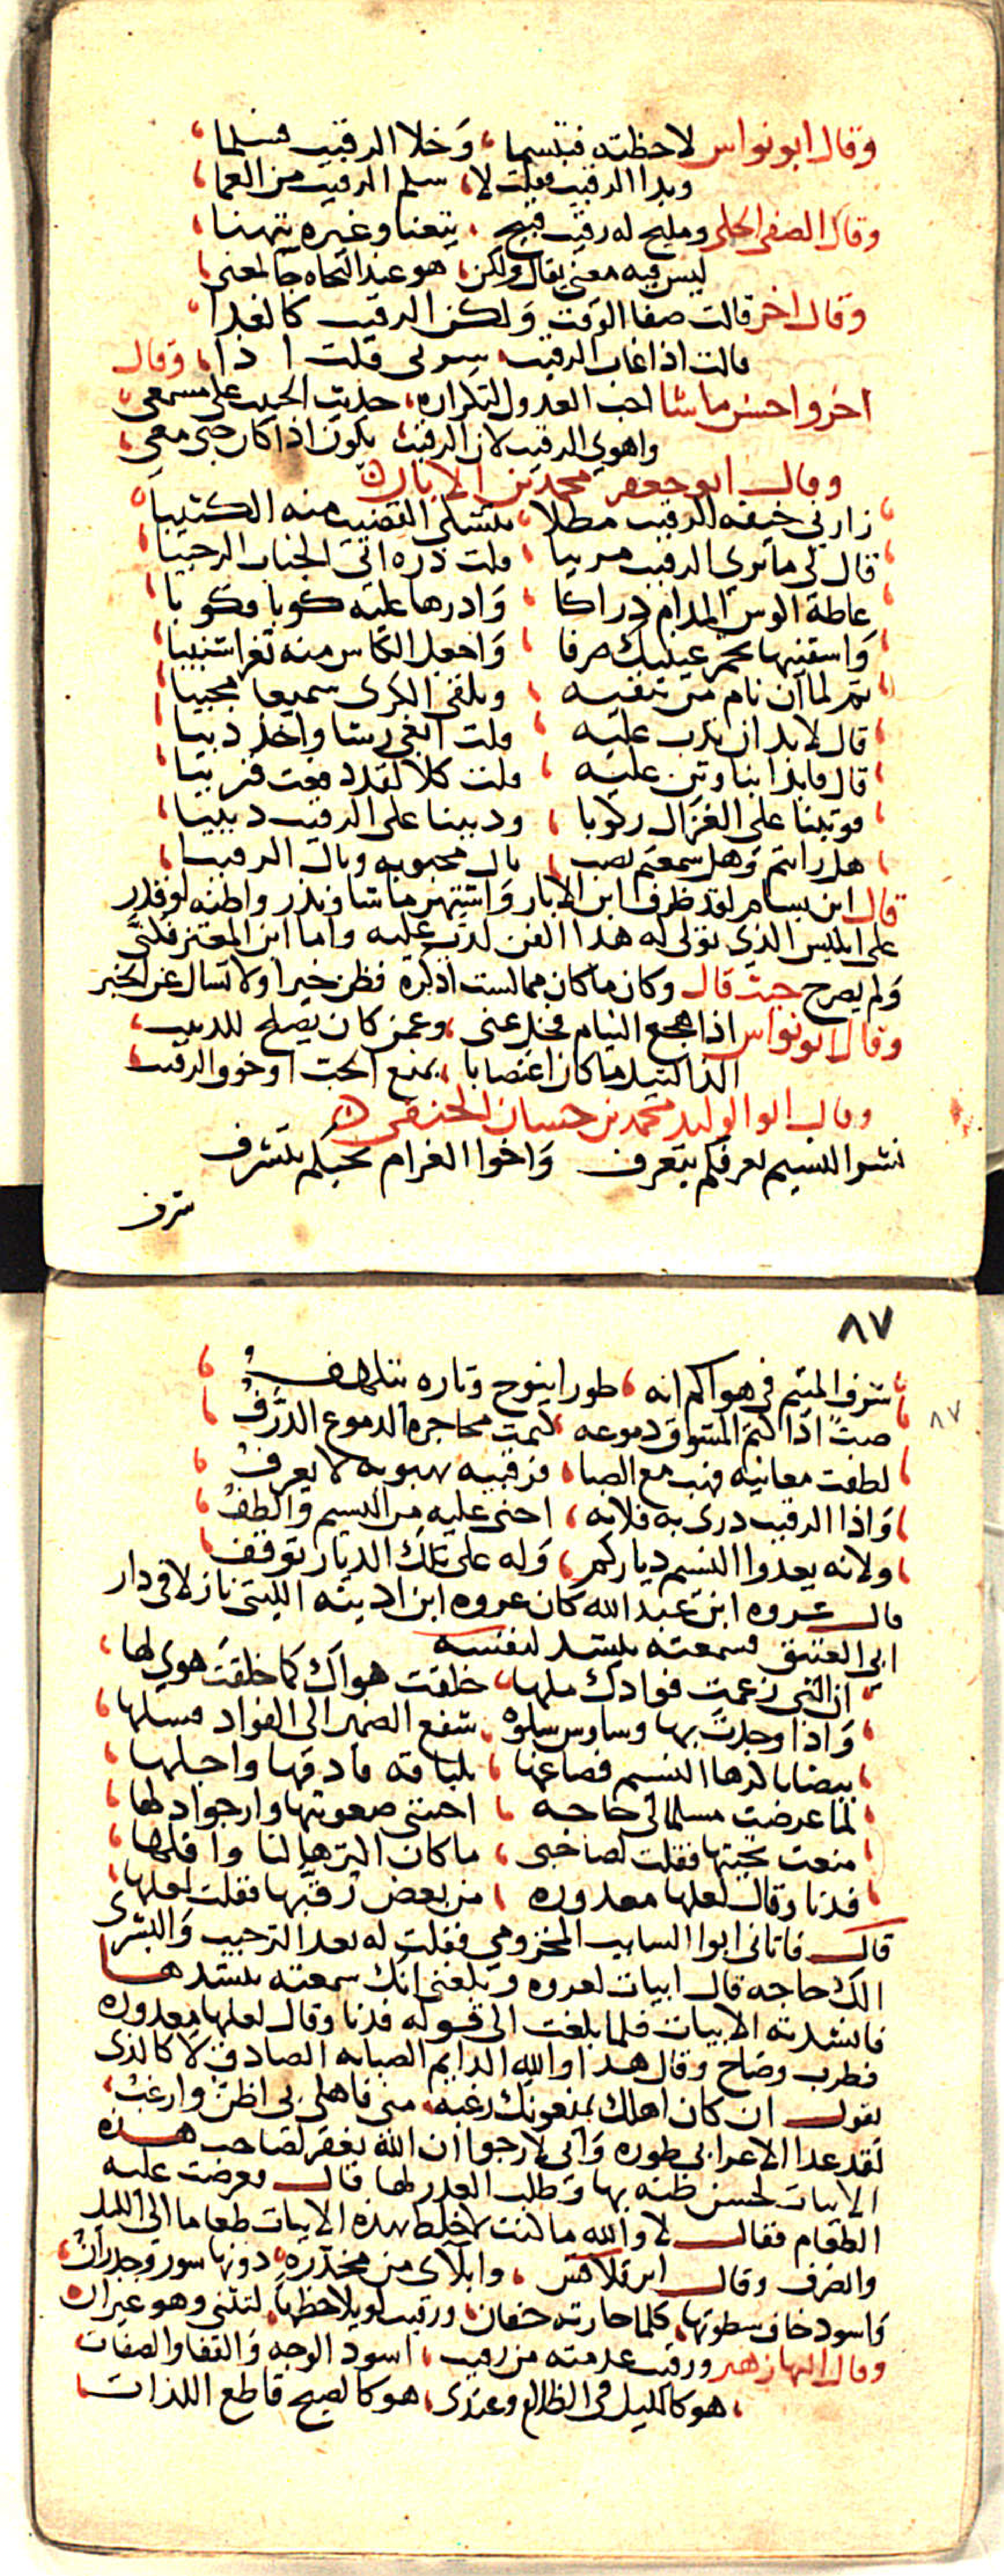 وقال ابو نواس لاحظته فتبسما ، وخلا الرقيب فسلما ،
وبدا الرقيب فقلت لا ، سلم الرقيب من العما ،
وقال الصفي الحلي ومليح له رقيب قبيح ، يتعنا وغيره يتهنا ،
ليس فيه معنى يقال ولكن ، هو عند النحاه جا لمعنى ،
وقال اخر قالت صفا الوقت ولكن الرقيب كالغدا ،
قالت اذا غاب الرقيب سر لى قلت اذا ، وقال
اخر واحسن ما شا احب العدول لتكراره ، حديث الحبيب على مسمعي ،
واهوي الرقيب لان الرقيب يكون اذا كان حبى معي ،
وقال ابو جعفر محمد بن الابار
زارني خيفه الرقيب مطلا ، يتشكى القضيب منه الكثيبا ،
قال لي ما تري الرقيب مريبا ، قلت ذره اتي الجناب الرحيبا ،
عاطه الوس المدام دراكا ، وادرها عليه كوبا فكوبا ،
واسقنيها بخمر عينيك صرفا ، واجعل الكاس منه ثغرا شنيبا ،
ثم لما ان نام من نتقيه ، وتلقى الكرى سميعا مجيبا ،
قال لا بد ان ندب عليه ، قلت ابغي رشا واخذ ذيبا ،
قال فابدا بنا وثن عليه ، قلت كلا لقد دفعت قريبا ،
فوثبنا على الغزال ركوبا ، ودببنا على الرقيب دبيبا ،
هل رايتم وهل سمعتم بصب ، ناك محبوبه وناك الرقيبا ،
قال ابن بسام لقد ظرف ابن الابار واشتهر ما شا وندر واظنه لو قدر
على ابليس الذي تولى له هذا الفن لدب عليه واما ابن المعتز فكنى
ولم يصرح حيث قال وكان ما كان مما لست اذكره فظن خيرا ولا تسال عن الخبر
وقال ابو نواس اذا هجع النيام فخل عنى ، وعمن كان يصلح للدبيب ،
الذ النيل ما كان اغتصابا ، بمنع الحب او خوف الرقيب ،
وقال ابو الوليد محمد بن حسان الحنفي
نشر النسيم بعرفكم يتعرف واخوا الغرام بحبكم يتشرف
شرف
٨٧
شرف المتيم في هواكم انه ، طورا ينوح وتاره يتلهف ،
٨٧
صب اذا كتم المشوق دموعه نمت محاجره الدموع الذرف ،
لطفت معانيه فهب مع الصبا ، فرقيبه بهبوبه لا يعرف ،
واذا الرقيب درى به فلانه ، اخفى عليه من النسيم والطف ،
ولانه يعدوا النسيم دياركم ، وله على تلك الديار توقف ،
قال عروه ابن عبد الله كان عروه ابن اذينه الليثى نازلا في دار
ابي العتيق فسمعته ينشد لنفسه
ان التى زعمت فوادك ملها ، خلقت هواك كما خلقت هوي لها ،
واذا وجدت بها وساوس سلوه ، شفع الضمير الى الفواد فسلها ،
بيضا باكرها النسيم فصاغها ، بلباقه فادقها واجلها ،
لما عرضت مسلما لى حاجه ، اخشى صعوبتها وارجوا دلها ،
منعت تحيتها فقلت لصاحبي ، ما كان اكثرها لنا واقلها ،
فدنا وقال لعلها معذوره ، من بعض رقبتها فقلت لعلها ،
قال فاتانى ابوا السايب المخزومي فقلت له بعد الترحيب والبشرى
الك حاجه قال ابيات لعروه وبلغني انك سمعته ينشدها
فانشدته الابيات فلما بلغت الى قوله فدنا وقال لعلها معذوره
فطرب وصاح وقال هذا والله الدايم الصبابه الصادق لا كالذى
يقول ان كان اهلك يمنعونك رغبة ، منى فاهلى بى اظن وارغب ،
لقد عدا الاعرابي طوره واني لارجوا ان الله يغفر لصاحب هذه
الابيات لحسن ظنه بها وطلب العذر لها قال فعرضت عليه
الطعام فقال لا والله ما كنت لاخلط بهذه الابيات طعاما الى الليل
وانصرف وقال ابن قلاقس ، وابلآى من مخدره ، دونها سور وجدران ،
واسود خاف سطوتها ، كلما حارته خفان ، ورقيب لو يلاحظها ، لتثنى وهو غيران
وقال البها زهير ورقيب عدمته من رقيب ، اسود الوجه والقفا والصفات
، هو كالليل في الظلام وعندى ، هو كالصبح قاطع اللذات ،